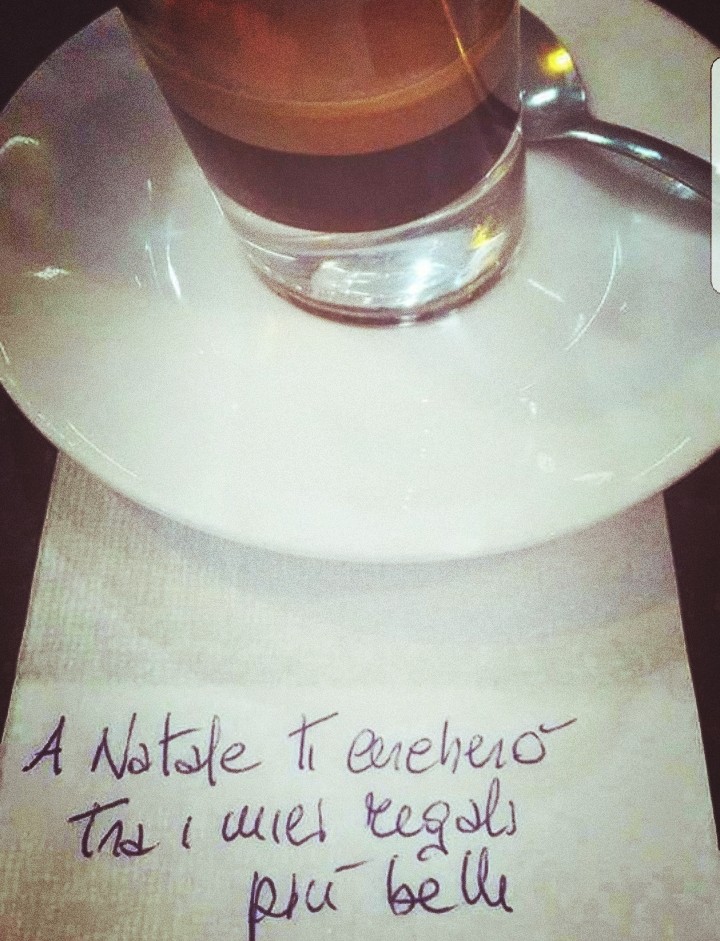 A Natale ti cercherò
tra i miei regali
più belli